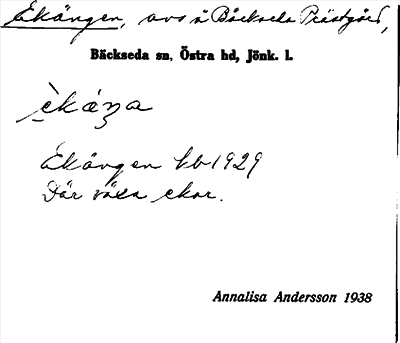 Ekängen, avs å Bäckseda Prästgård,
Bäckseda sn, Östra hd, Jönk. l.
èkáŋa
Ekängen kb 1929
Där växa ekar.
Annalisa Andersson 1938